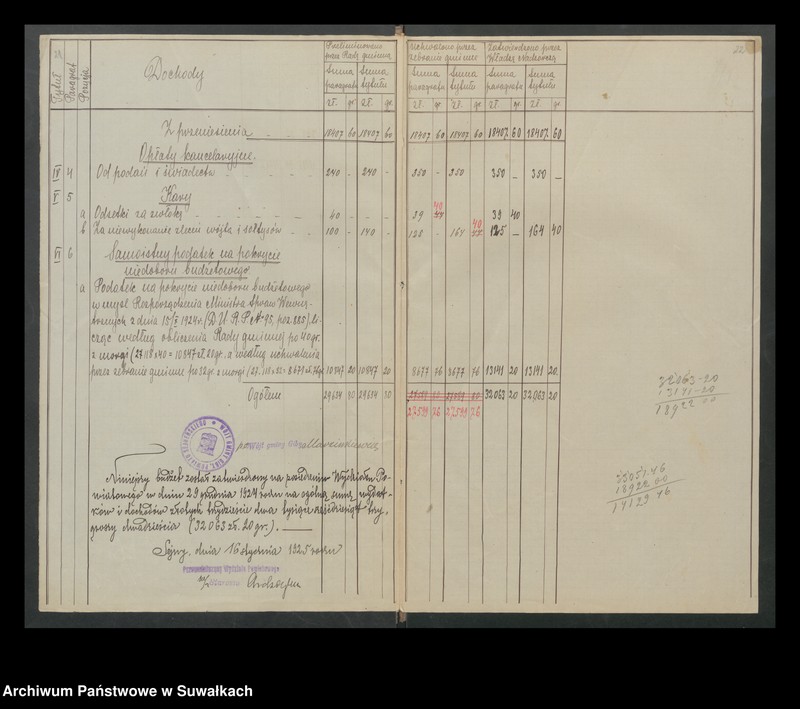 Tytuł
Paragraf
Pozycja
Dochody
Preliminowano przez Radę gminną
Suma paragrafu
Suma tytułu
zł. gr. zł. gr.
Uchwalono przez zebranie gminne
Suma paragrafu
Suma tytułu
zł. gr. zł. gr.
Zatwierdzono przez Władzę Nadzorczą
Suma paragrafu
Suma tytułu
zł. gr. zł. gr.
22
Z przeniesienia 18407 60 18407 60 18407 60 18407 60 18407 60 18407 60
Opłaty kancelaryjne.
IV 4 Od podań i świadectw 240 - 240 - 350 - 350 350 - 350 -
V 5 Kary
a Odsetki za zwłokę 40 - - - 39 40 39 40
b Za niewykonanie zleceń wójta i sołtysów 100 - 140 - 125 - 164 40 125 - 164 40
VI 6 Samoistny podatek na pokrycie
niedoboru budżetowego
a Podatek na pokrycie niedoboru budżetowego
w myśl Rozporządzenia Ministra Spraw Wewnę-
trznych z dnia 15/X 1924 r. (D. U. R. P. № 95, poz. 885), li-
cząc według obliczenia Rady gminnej po 40 gr.
z morgi (27118x40 = 10847 zł. 20 gr. a według uchwalenia
przez zebranie gminne po 32 gr. z morgi 10847 20 10847 20 8677 76 8677 76 13141 20 13141 20
Ogółem 29634 80 29634 80 32063 20 32063 20
27599 76 27599 76
32063-20
13141-20
18922 00
18922 00
14129 46
Niniejszy budżet został zatwierdzony na posiedzeniu Wydziału Po-
wiatowego w dniu 29 grudnia 1924 roku na ogólną sumę wydat-
ków i dochodów złotych trzydzieści dwa tysiące sześćdziesiąt trzy,
groszy dwadzieścia (32063 zł. 20 gr.).
Sejny, dnia 16 stycznia 1925 roku
Przewodniczący Wydziału Powiatowego
Archiwum Państwowe w Suwałkach